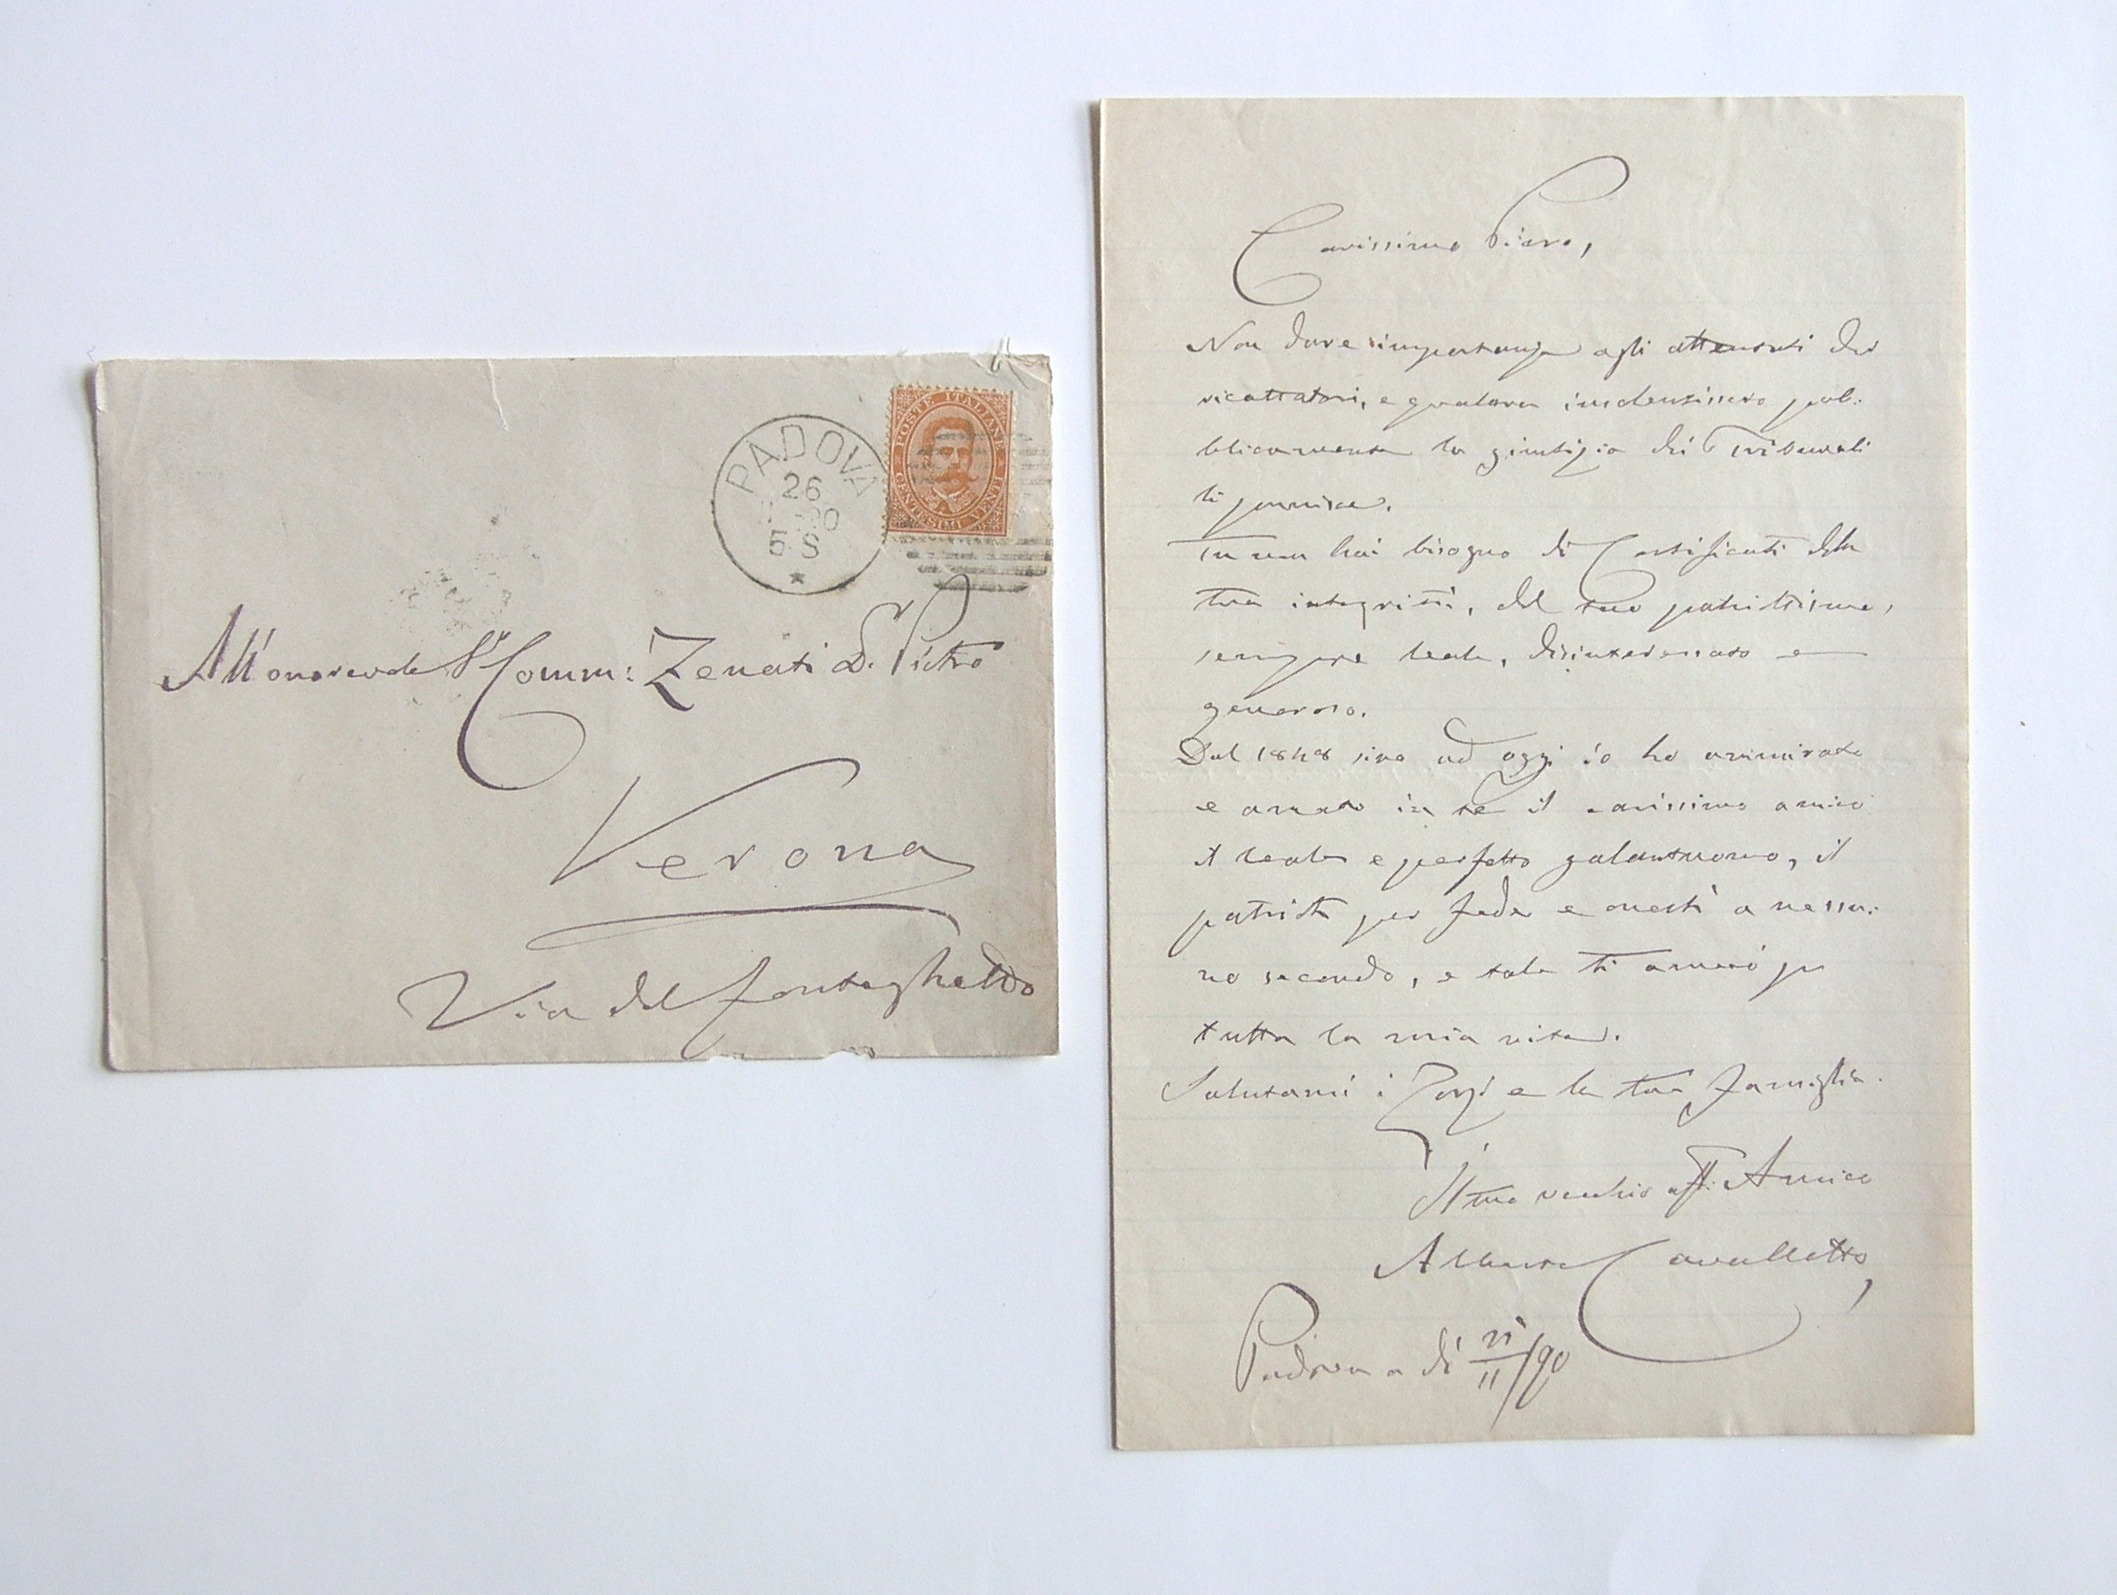 PADOVA
26
5 S
POSTE ITALIANE
CENTESIMI VENTI
All'onorevole Sr Comm: Zenati Dr. Pietro
Verona
Via del fonteghetto
Carissimo Piero,
Non dare importanza agli attentati dei
ricattatori, e qualora insolentissero pub-
blicamente la giustizia dei Tribunali
li punisca.
Tu non hai bisogno di Certificati della
tua integrità, del tuo patriottismo,
sempre leale, disinteressato e
generoso.
Dal 1848 sino ad oggi io ho ammirato
e amato in te il carissimo amico
il leale e perfetto galantuomo, il
patriota per fede e onestà a nessu-
no secondo, e tale ti amerò per
tutta la mia vita.
Salutami i Zorzi e la tua famiglia.
Il tuo vecchio aff: Amico
Alberto Cavalletto
Padova a di /90